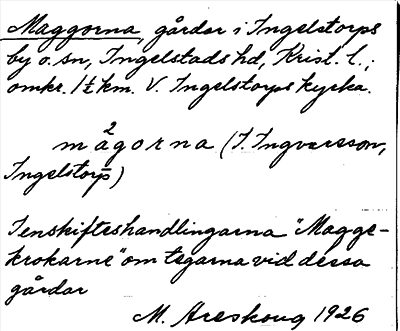 Maggorna, gårdar i Ingelstorps
by o. sn, Ingelstads hd, Krist. l.;
omkr. 1½ km. V. Ingelstorps kyrka.
m a²gorna (I. Ingvarsson,
Ingelstorp)
I enskifteshandlingarna "Magge-
krokarne" om tegarna vid dessa
gårdar
M. Areskoug 1926